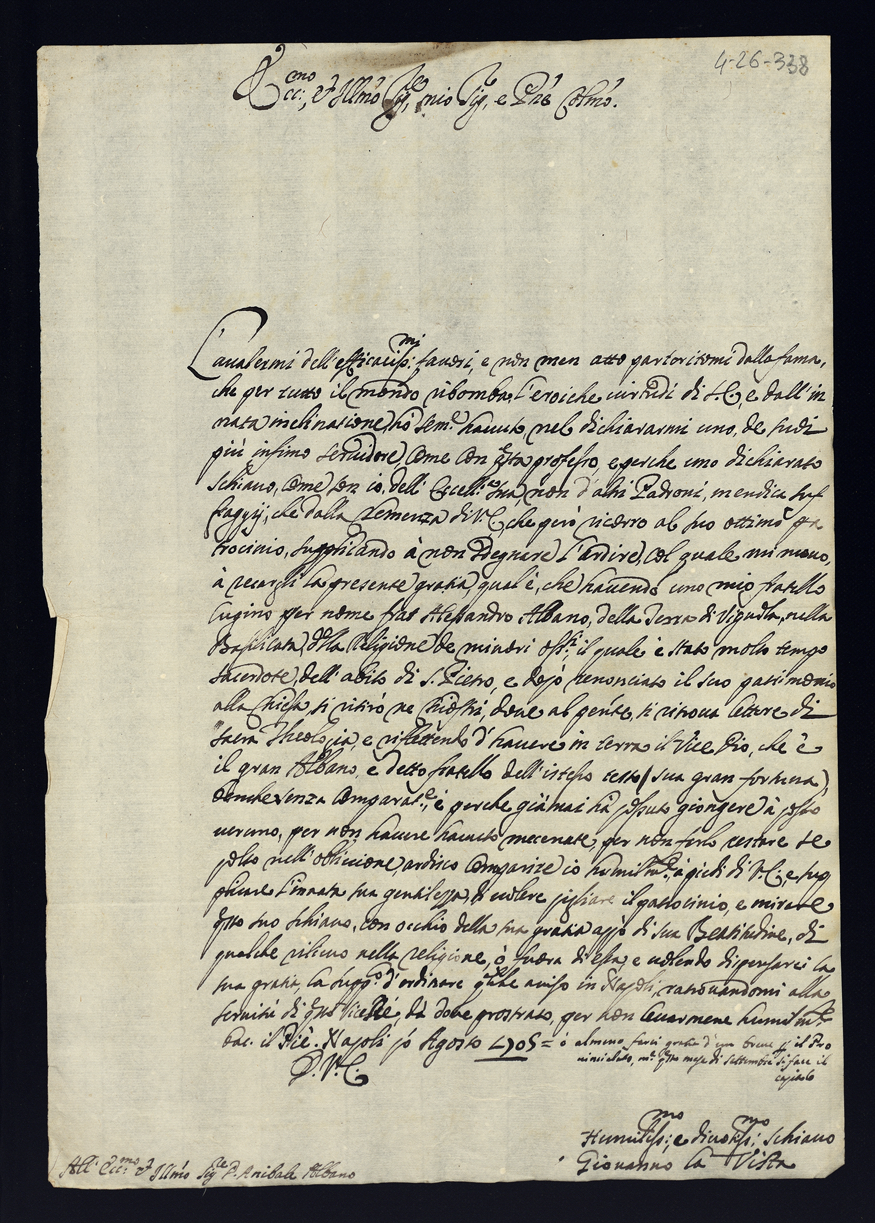 4-26-338
Ecc.mo, et Ill.mo Sig.re, mio Sig.re, e P.ne Col.mo.
L'auualermi dell'efficacissi.mi fauori, e non men atto partoritomi dalla fama,
che per tutto il mondo ribomba l'eroiche uirtudi di V.E., e dall'in
nata inclinatione, hò sem.e hauuto, nel dichiararmi uno, de suoi
più infimo seruidore, come con q.sta professo, e perche uno dichiarato
schiauo, come son io, dell'Eccell.za sua, non d'altri Padroni, mendica suf
fraggij, che dalla clemenza di V.E., che però ricorro al suo ottimo pa
trocinio, supplicando à non sdegnare l'ardire, col quale mi muouo,
à recargli la presente gratia, qual'è, che hauendo uno mio fratello
Cugino per nome frat'Alessandro Albano, della Terra di Vignola, nella
Basilicata, della Religione de minori oss.ti, il quale è stato molto tempo
sacerdote, dell'abito di S. Pietro, e dopò renonciato il suo patrimonio
alla Chiesa, si ritirò ne Chiostri, doue al p.nte si ritroua lettore di
sacra Theologia, e riflettendo d'hauere in terra il Vice Dio, che è
il gran Albano, e detto fratello dell'istesso ceto (sua gran fortuna),
benche senza comparat.e, è perche giàmai hà possuto giongere à posto
ueruno, per non hauere hauuto mecenate, per non farlo restare se
polto nell'obliuione, ardisco comparire io humilm.te à piedi di V.E., e sup
plicare l'innata sua gentilezza, di uolere pigliare il patrocinio, e mirare
q.sto suo schiauo, con occhio della sua gratia app.o di sua Beatitudine, di
qualche rilieuo nella religione, ò fuora di essa, e uolendo dispensarci la
sua gratia, la supp.co d'ordinare q.lche auiso in Napoli, ratrouandomi alla
seruitù di q.sto ViceRè, da doue prostrato, per non leuarmene humilm.te
bac. il Piè. Napoli p.o Agosto 1705 = ò almeno farci gratia d'un breue p. il Pro
uincialato, m.e q.sto mese di settembre si fare il
capitolo
D. V. E.
Humilissi.mo; e diuotissi.mo; schiauo
Giovanno la Vista
All'Ecc.mo et Ill.mo Sig.re D. Anibale Albano